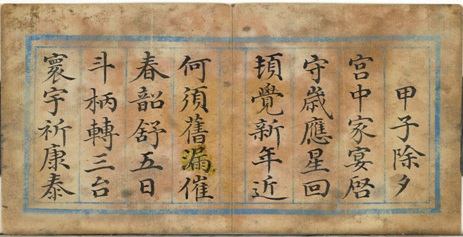 甲子除夕
宮中家宴啓
守歲應星回
頓覺新年近
何須舊漏催
春韶舒五日
斗柄轉三台
寰宇祈康泰